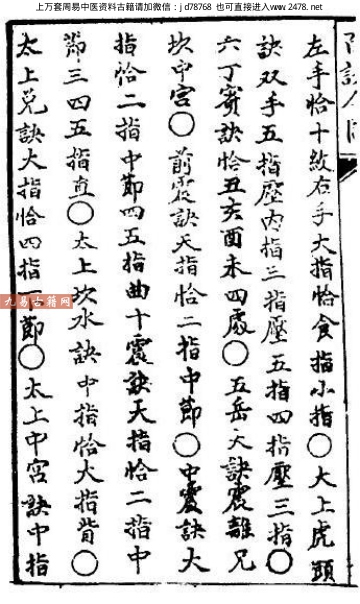 上万套周易中医资料古籍请加微信：jd78768 也可直接进入www.2478.net
左手恰十紋右手大指恰食指小指〇太上虎頭
訣双手五指壓内指三指壓五指四指壓三指〇
六丁賓訣恰丑亥酉未四處〇五岳大訣震離兄
坎中宮〇前震訣天指恰二指中節〇中震訣大
指恰二指中節四五指曲十震訣天指恰二指中
節三四五指直〇太上坎水訣中指恰大指背〇
太上兌訣大指恰四指下節〇太上中宮訣中指
九易古籍网